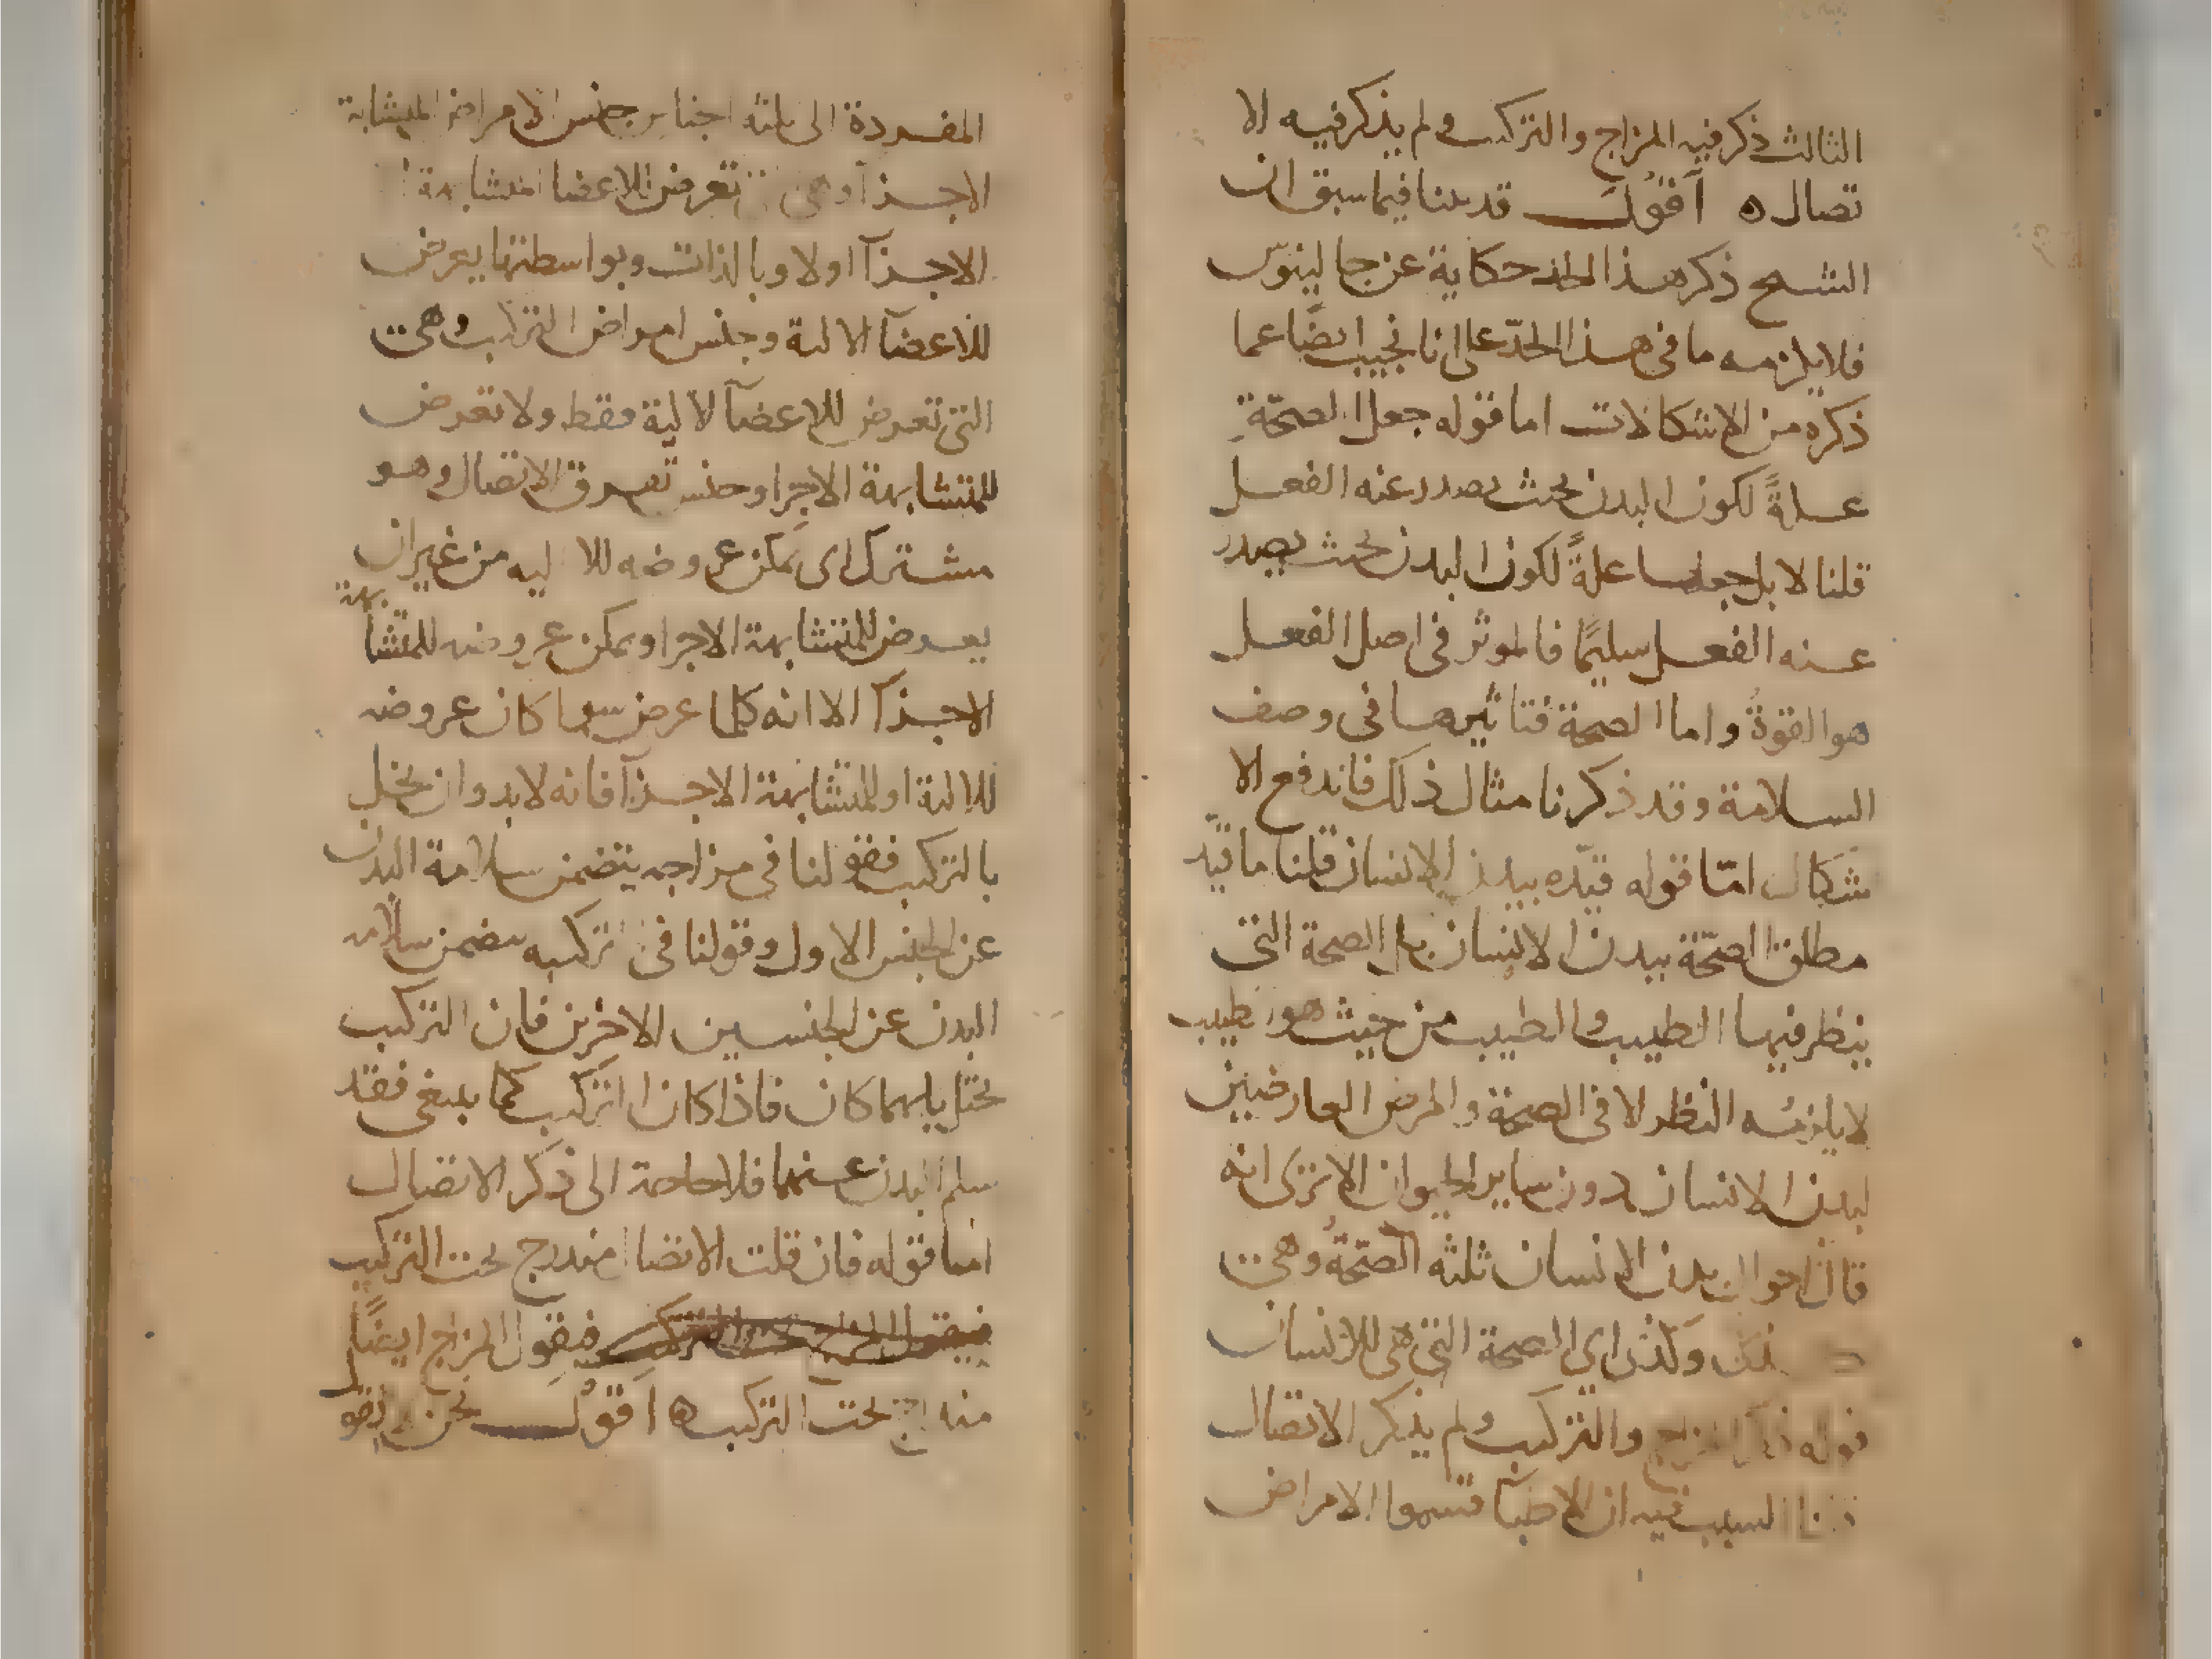 الثالث ذكر فيه المزاج والتركيب ولم يذكر فيه الا
تصال ه اقول قد بينا فيما سبق ان
الشيخ ذكر هذا الحد حكاية عن جالينوس
فلا يلزمه ما في هذا الحدّ على انا نجيب ايضًا عما
ذكره من الاشكالات اما قوله جعل الصحّة
علةً لكون البدن بحيث يصدر عنه الفعل
قلنا لا بل جعلها علةً لكون البدن بحيث يصدر
عنه الفعل سليمًا فالموثر في اصل الفعل
هو القوةُ واما الصحة فتاثيرها في وصف
السلامة وقد ذكرنا مثال ذلك فاندفع الا
شكال امّا قوله قيّده ببدن الانسان قلنا ما قيّد
مطلق الصحّة ببدن الانسان بل الصحة التي
ينظر فيها الطبيب والطبيب من حيث هو طبيب
لا يلزمُه النظر الا في الصحة والمرض العارضين
لبدن الانسان دون ساير الحيوان الا ترى انه
قال احوال بدن الانسان ثلثه الصّحّةُ وهي
وكذى اي الصحة التي هي للانسان
قوله ذكر المزاج والتركيب ولم يذكر الاتصال
قلنا السبب فيه ان الاطبآ قسموا الامراض
المفردة الى ثلثه اجناس جنس الامراض المتشابهة
الاجزآ وهي تعرض للاعضا المتشابهة
الاجزآ اولا وبالذات وبواسطتها يعرض
للاعضآ الالية وجنس امراض التركيب وهي
التي تعرض للاعضآ الالية فقط ولا تعرض
للمتشابهة الاجزا وجنس تفرق الاتصال وهو
مشترك اى يمكن عروضه للا ليه من غير ان
يعرض للمتشابهة الاجزا ويمكن عروضه للمتشابهة
الاجزآ الا انه كلما عرض سوا كان عروضه
للالية او للمتشابهة الاجزآ فانه لابد وان يخل
بالتركيب فقولنا في مزاجه يتضمن سلامة البدن
عن الجنس الاول وقولنا في تركيبه يتضمن سلامه
البدن عن الجنسين الاخرين فان التركيب
يختل بايهما كان فاذا كان التركيب كما ينبغي فقد
سلم البدن عنهما فلا حاجة الى ذكر الاتصال
اما قوله فان قلت الاتصال مندرج تحت التركيب
فيقول المزاج ايضًا
مندرج تحت التركيب ه اقول نحن نقو